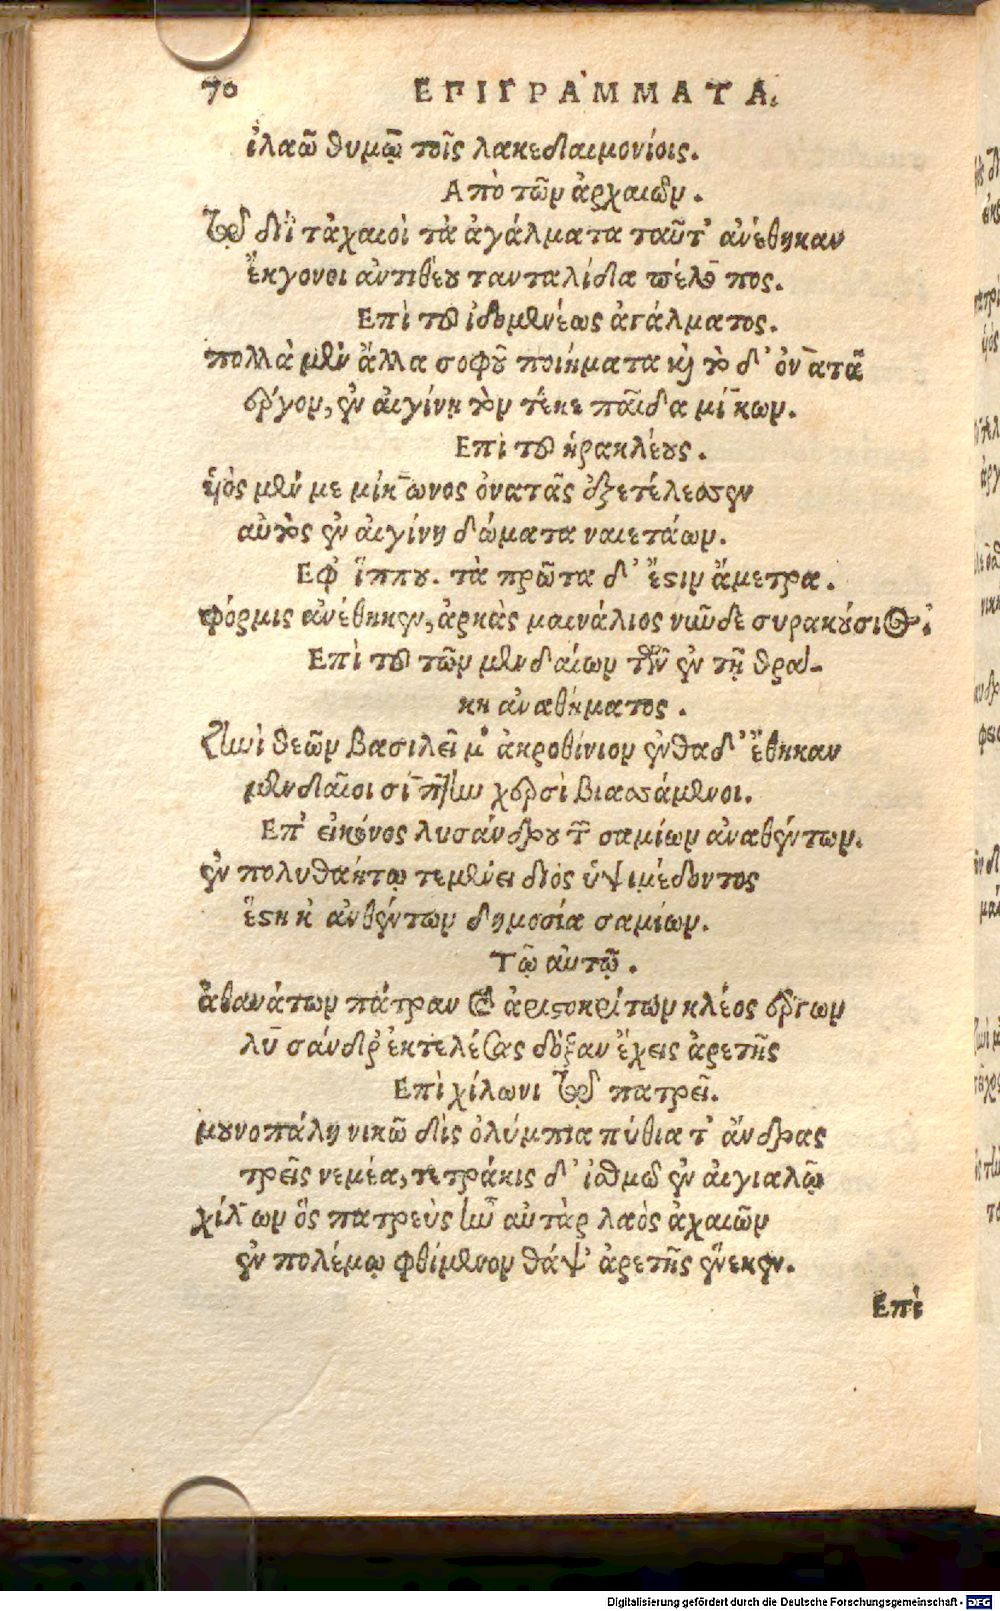 70 ΕΠΙΓΡΑΜΜΑΤΑ.
ἰλαῶ θυμῷ τοῖς λακεδαιμονίοις.
Απὸ τῶν ἀρχαιῶν.
τῷ διῒ τἀχαιοὶ τὰ ἀγάλματα ταῦτ' ἀνέθηκαν
ἔκγονοι ἀντιθέου τανταλίδα πέλοπος.
Επὶ τοῦ ἰδομενέως ἀγάλματος.
πολλὰ μὲν ἄλλα σοφοῦ ποιήματα καὶ τὸ δ' ὀνατᾶ
ἔργον, ἐν αἰγίνῃ τὸν τέκε παῖδα μίκων.
Επὶ τοῦ ἡρακλέους.
ὑιὸς μέν με μίκωνος ὀνατᾶς ἐξετέλεσσεν
αὐτὸς ἐν αἰγίνῃ δώματα ναιετάων.
Εφ' ἵππου. τὰ πρῶτα δ' ἔστιν ἄμετρα.
φόρμις ἀνέθηκεν, ἀρκὰς μαινάλιος νῦν δὲ συρακούσιος.
Επὶ τοῦ τῶν μενδαίων τῶν ἐν τῇ θρᾴ-
κῃ ἀναθήματος.
ζηνὶ θεῶν βασιλεῖ μ' ἀκροθίνιον ἐνθάδ' ἔθηκαν
μενδαῖοι σίπτην χερσὶ βιασσάμενοι.
Επ' εἰκόνος λυσάνδρου τῶν σαμίων ἀναθέντων.
ἐν πολυθαήτῳ τεμένει διὸς ὑψιμέδοντος
ἕστηκ' ἀνθέντων δημοσίᾳ σαμίων.
Τῷ αὐτῷ.
ἀθανάτων πάτραν καὶ ἀριστοκρίτων κλέος ἔργων
λύσανδρ' ἐκτελέσας δόξαν ἔχεις ἀρετῆς
Επὶ χίλωνι τῷ πατρεῖ.
μουνοπάλη νικῶ δὶς ὀλύμπια πύθια τ' ἄνδρας
τρεῖς νεμέα, τετράκις δ' ἰσθμῷ ἐν αἰγιαλῷ
χίλων ὃς πατρεὺς ἦν αὐτὰρ λαὸς ἀχαιῶν
ἐν πολέμῳ φθίμενον θάψ' ἀρετῆς ἕνεκεν.
Επὶ
Digitalisierung gefördert durch die Deutsche Forschungsgemeinschaft - DFG